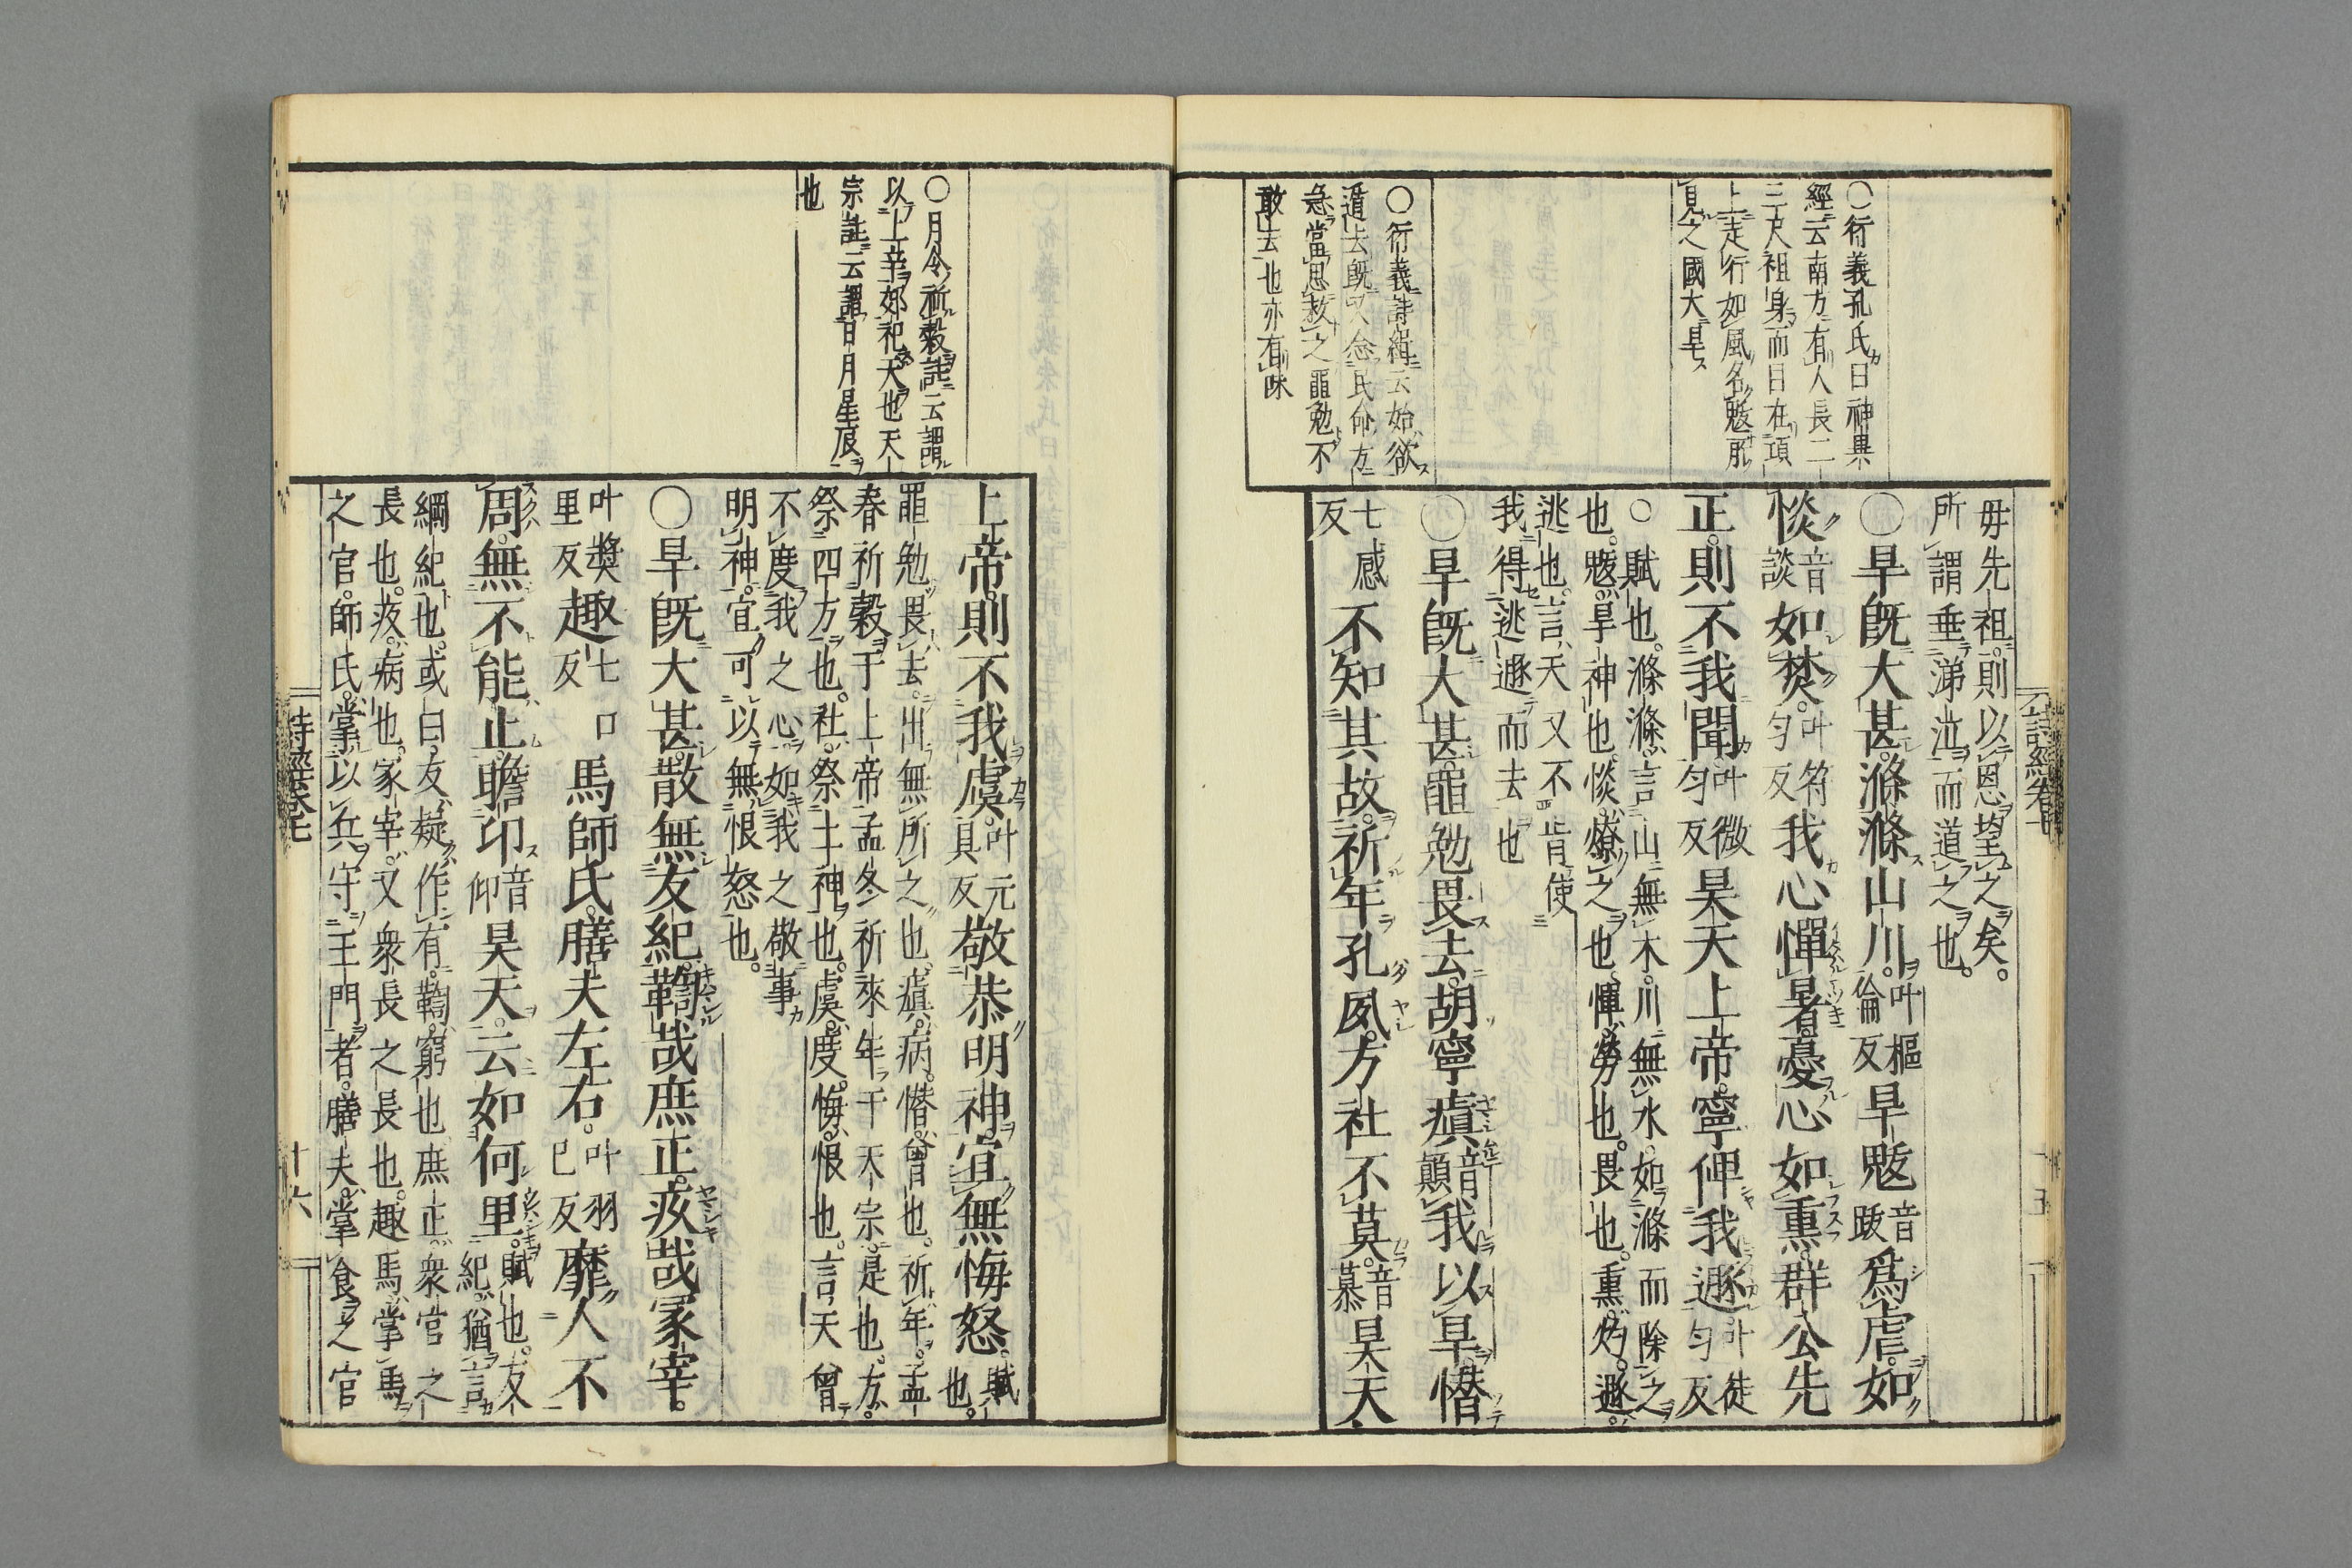 ○衍義孔氏曰神異
經云南方有人長二
三尺祖身而目在頂
上走行如風名魃所
見之國大旱
○衍義詩緝云始欲
遁去既又念民命方
急當思救之黽勉不
敢去也亦有味
毋先祖則以恩望之矣
所謂垂涕泣而道之也
○旱既大甚滌滌山川叶樞倫反旱魃音跋爲虐如
惔音談如焚叶符勻反我心憚暑憂心如熏群公先
正則不我聞叶微勻反昊天上帝寧俾我遯叶徒勻反
○賦也滌滌言山無木川無水如滌而除之
也魃旱神也惔燎之也憚勞也畏也熏灼遯
逃也言天又不肯使
我得逃遯而去也
○旱既大甚黽勉畏去胡寧瘨音顛我以旱憯
七感反不知其故祈年孔夙方社不莫音慕昊天
詩經卷七
○月令祈穀註云謂
以上辛郊祀天也天
宗註云謂日月星辰
也
上帝則不我虞叶元具反敬恭明神宜無悔怒賦也
黽勉畏去出無所之也瘨病憯曾也祈年孟
春祈穀于上帝孟冬祈來年于天宗是也方
祭四方也社祭土神也虞度悔恨也言天曾
不度我之心如我之敬事
明神宜可以無恨怒也
○旱既大甚散無友紀鞫哉庶正疚哉冢宰
叶奬里反趣七口反馬師氏膳夫左右叶羽已反靡人不
周無不能止瞻卬音仰昊天云如何里賦也友紀猶言
綱紀也或曰友疑作有鞫窮也庶正衆官之
長也疚病也冢宰又衆長之長也趣馬掌馬
之官師氏掌以兵守王門者膳夫掌食之官
詩經卷七
十六